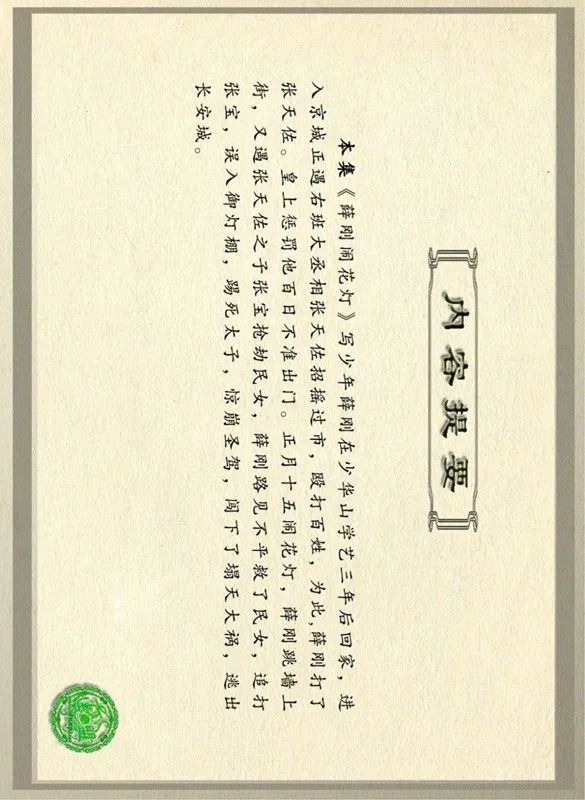 内容提要
本集《薛刚闹花灯》写少年薛刚在少华山学艺三年后回家，进
入京城正遇右班大丞相张天佐招摇过市，殴打百姓，为此，薛刚打了
张天佐。皇上惩罚他百日不准出门。正月十五闹花灯，薛刚跳墙上
街，又遇张天佐之子张宝抢劫民女，薛刚路见不平救了民女，追打
张宝，误入御灯棚，踢死太子，惊崩圣驾，闯下了塌天大祸，逃出
长安城。